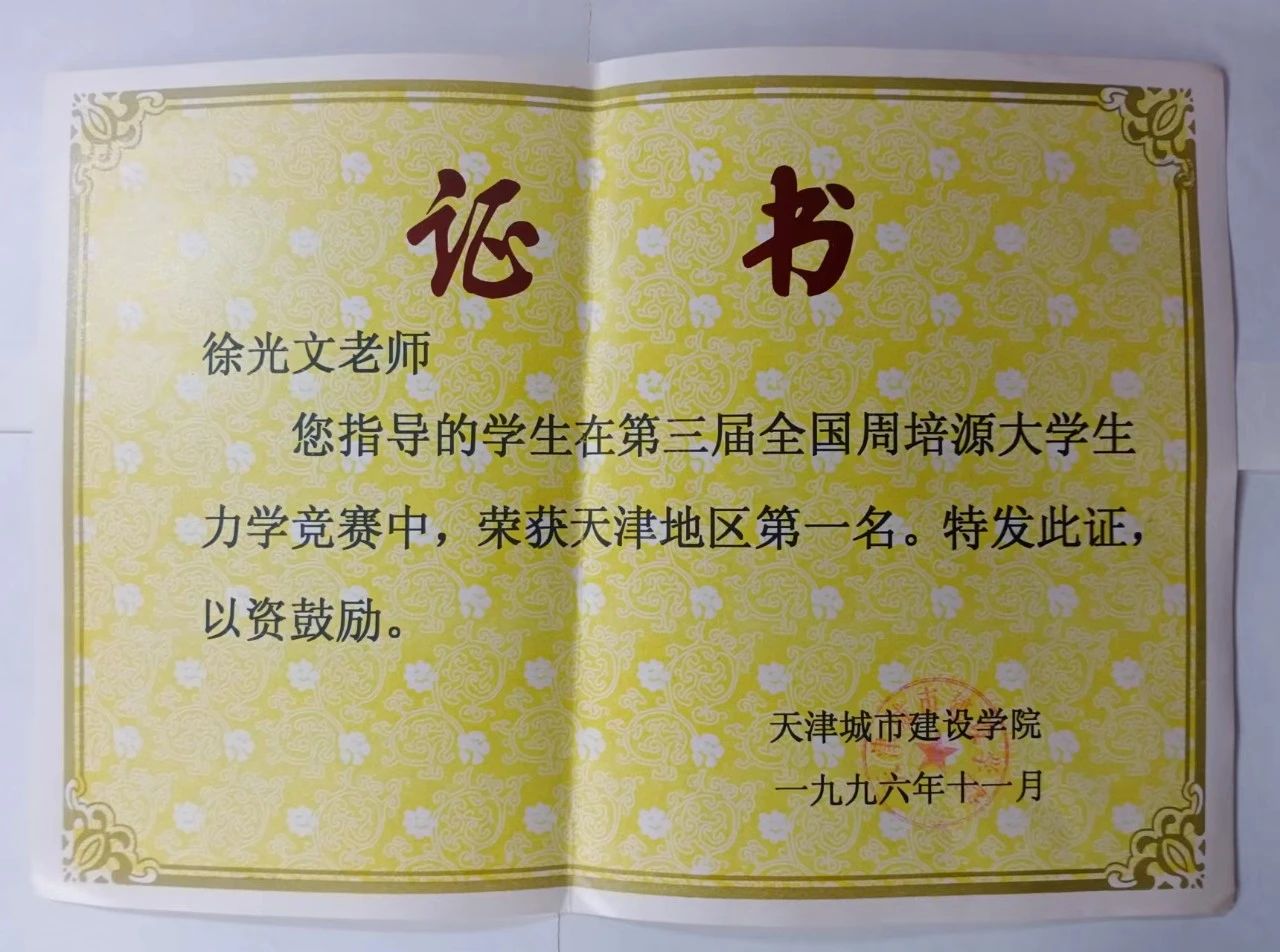 证书
徐光文老师
您指导的学生在第三届全国周培源大学生
力学竞赛中，荣获天津地区第一名。特发此证，
以资鼓励。
天津城市建设学院
一九九六年十一月